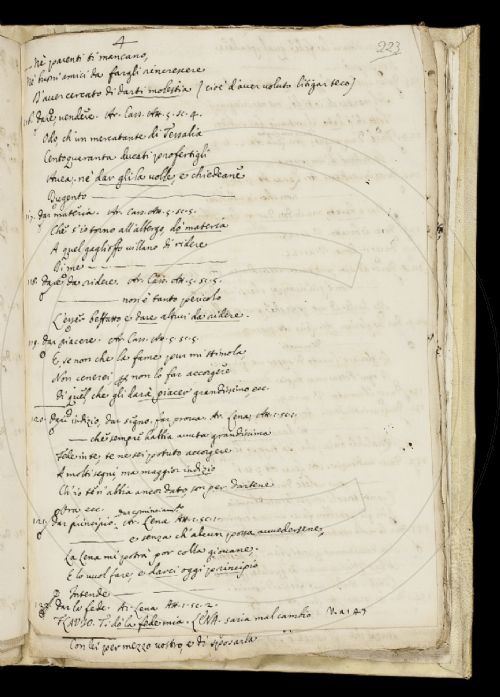 4
223
Nè parenti ti mancano,
Nè buoni amici da fargli rincrescere
D'aver cercato di darti molestia (cioè d'aver voluto litigar teco)
116. dare, vendere. Ar. Cass. Att. 5. sc. 4.
Odo, ch'un mercatante di Tessalia
Centoquaranta ducati profertigli
Avea, nè dargli la volle, e chiedeane
Dugento
117. dar materia. Ar. Cass. Att. 5. sc. 5.
Che s'io torno all'albergo, do materia
A quel gaglioffo villano di ridere
Di me
118. dare da ridere. Ar. Cass. Att. 5. sc. 5.
non è tanto pericolo
L'esser beffato e dare altrui da ridere.
119. dar piacere. Ar. Cass. Att. 5. sc. 5.
E, se non che la fame pur mi stimola,
Non cenerei per non lo far accorgere
Di quel che gli darà piacer grandissimo, ecc.
120. dare indizio, dar segno, far prova. Ar. Lena Att. 1. sc. 1.
che sempre habbia avuta grandissima
Fede in te, te ne sei potuto accorgere
A molti segni, ma maggior indizio
Ch'io t'abbia ancor dato, son per dartene
Ora ecc.
121. dar principio, dar cominciamto. Ar. Lena Att. 1. sc. 1.
e senza ch'alcun possa avvedersene,
La Lena mi potrà por colla giovane.
E lo vuol fare, e darci oggi principio
Intende
122. dar la fede. Ar. Lena Att. 1. sc. 2.
FLAVIO. Ti do la fede mia. LENA. saria mal cambio V. a 147
Con lei per mezzo vostro, e di sposarla